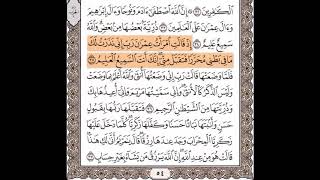 ٱلْكَٰفِرِينَ ٣٢ إِنَّ ٱللَّهَ ٱصْطَفَىٰٓ ءَادَمَ وَنُوحًا وَءَالَ إِبْرَٰهِيمَ
وَءَالَ عِمْرَٰنَ عَلَى ٱلْعَٰلَمِينَ ٣٣ ذُرِّيَّةًۢ بَعْضُهَا مِنۢ بَعْضٍ وَٱللَّهُ
سَمِيعٌ عَلِيمٌ ٣٤ إِذْ قَالَتِ ٱمْرَأَتُ عِمْرَٰنَ رَبِّ إِنِّى نَذَرْتُ لَكَ
مَا فِى بَطْنِى مُحَرَّرًا فَتَقَبَّلْ مِنِّىٓ إِنَّكَ أَنتَ ٱلسَّمِيعُ ٱلْعَلِيمُ ٣٥
فَلَمَّا وَضَعَتْهَا قَالَتْ رَبِّ إِنِّى وَضَعْتُهَآ أُنثَىٰ وَٱللَّهُ أَعْلَمُ بِمَا وَضَعَتْ
وَلَيْسَ ٱلذَّكَرُ كَٱلْأُنثَىٰ وَإِنِّى سَمَّيْتُهَا مَرْيَمَ وَإِنِّىٓ أُعِيذُهَا بِكَ
وَذُرِّيَّتَهَا مِنَ ٱلشَّيْطَٰنِ ٱلرَّجِيمِ ٣٦ فَتَقَبَّلَهَا رَبُّهَا بِقَبُولٍ
حَسَنٍ وَأَنۢبَتَهَا نَبَاتًا حَسَنًا وَكَفَّلَهَا زَكَرِيَّا كُلَّمَا دَخَلَ عَلَيْهَا
زَكَرِيَّا ٱلْمِحْرَابَ وَجَدَ عِندَهَا رِزْقًا قَالَ يَٰمَرْيَمُ أَنَّىٰ لَكِ هَٰذَا
قَالَتْ هُوَ مِنْ عِندِ ٱللَّهِ إِنَّ ٱللَّهَ يَرْزُقُ مَن يَشَآءُ بِغَيْرِ حِسَابٍ ٣٧
٥٤